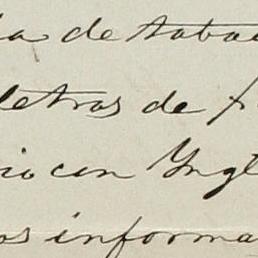 la de tabac
letras de f
rio con Yngl
os informa